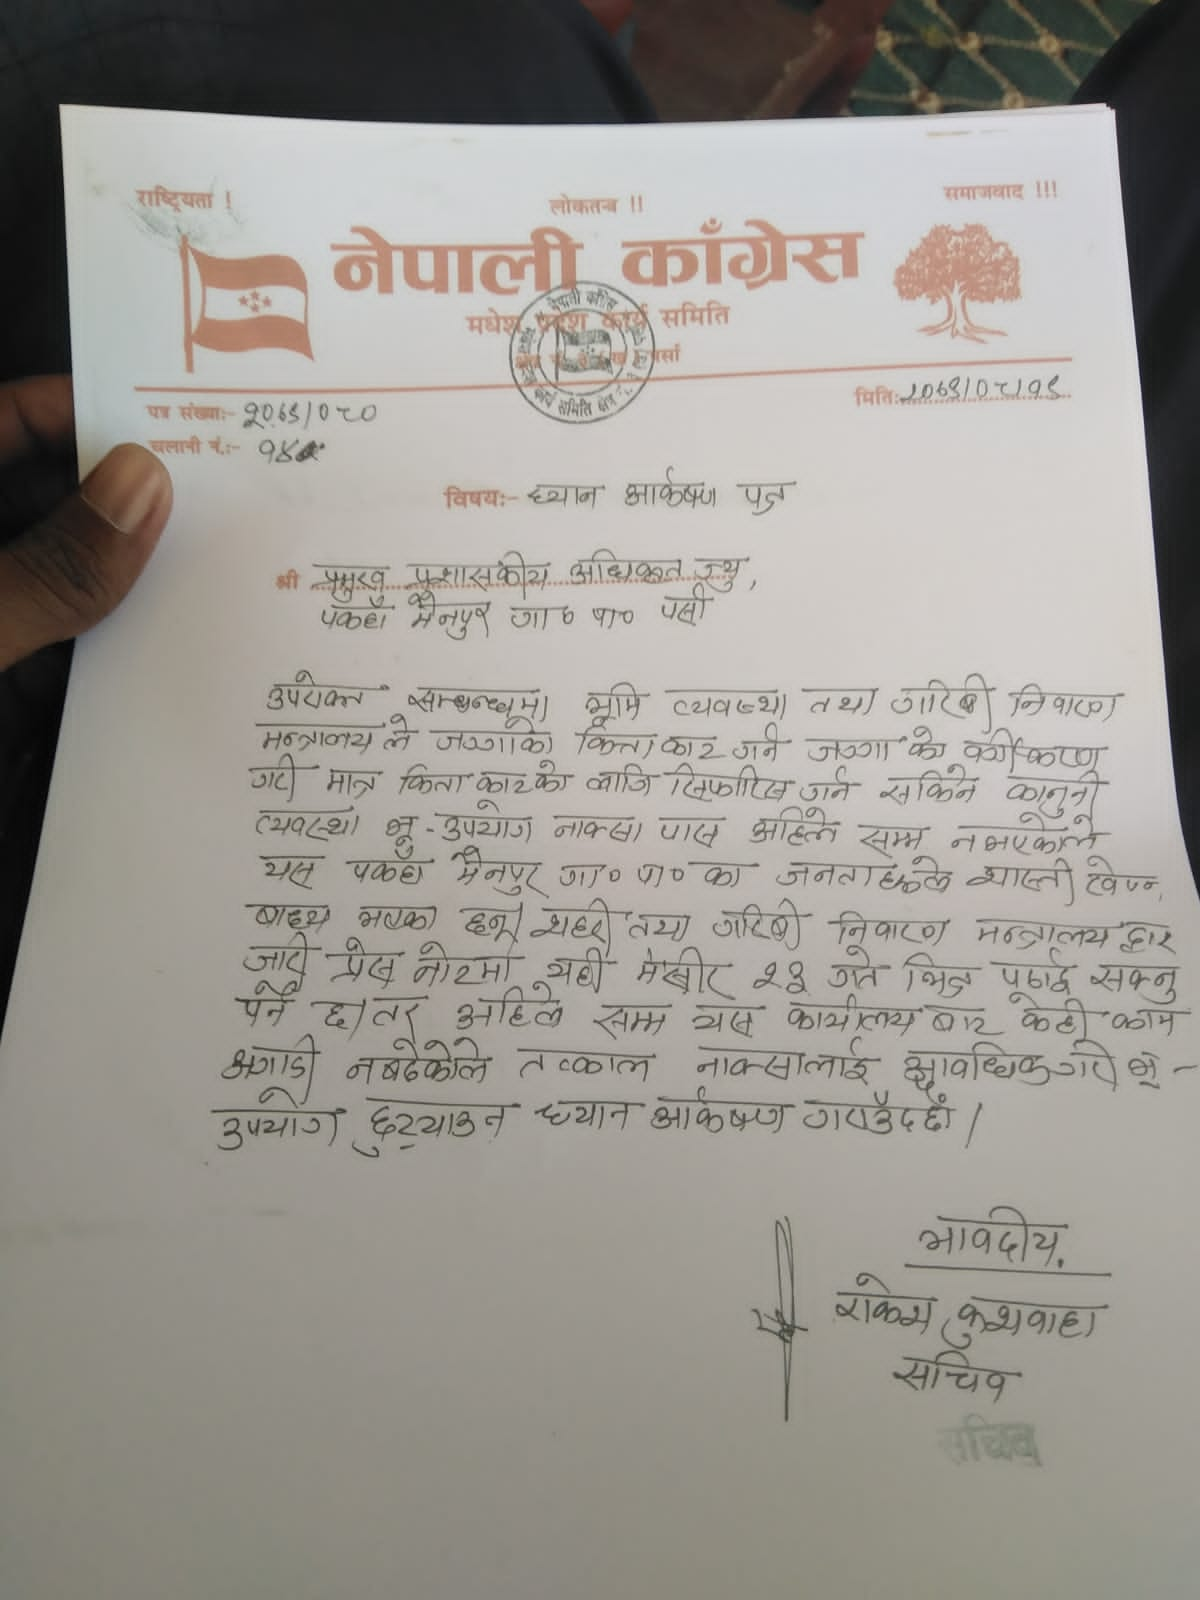 राष्ट्रियता ! लोकतन्त्र !! समाजवाद !!!
नेपाली काँग्रेस
मधेश प्रदेश कार्य समिति
पर्सा
पत्र संख्याः- २०७९/०८०
मितिः २०७९/०८/१९
चलानी नं.:-
विषयः- ध्यान आर्कषण पत्र
श्री प्रमुख प्रशासकीय अधिकृत ज्यु,
पकहाँ मैनपुर गा० पा० पर्सा
उपरोक्त सम्बन्धमा भूमि व्यवस्था तथा गरिबी निवारण
मन्त्रालय ले जग्गाको कित्ता काट गर्न जग्गा को वर्गीकरण
गरी मात्र कित्ता काटको लागि सिफारिस गर्न सकिने कानुनी
व्यवस्था भू-उपयोग नाक्सा पास अहिले सम्म नभएकोले
यस पकहाँ मैनपुर गा० पा० का जनताहरुले शास्ती
बाध्य भएका हुन् तथा गरिबी निवारण मन्त्रालय द्वार
जारी प्रेस नोटमा यही मंसीर २३ गते भित्र पठाई सक्नु
पर्ने छ। तर अहिले सम्म यस कार्यालय बाट केही काम
अगाडी नबढेकोले तत्काल नाक्सालाई गरी भू-
उपयोग ध्यान आर्कषण गराउँदछौं।
भावदीय.
राकेश कुशवाहा
सचिव
सचिव